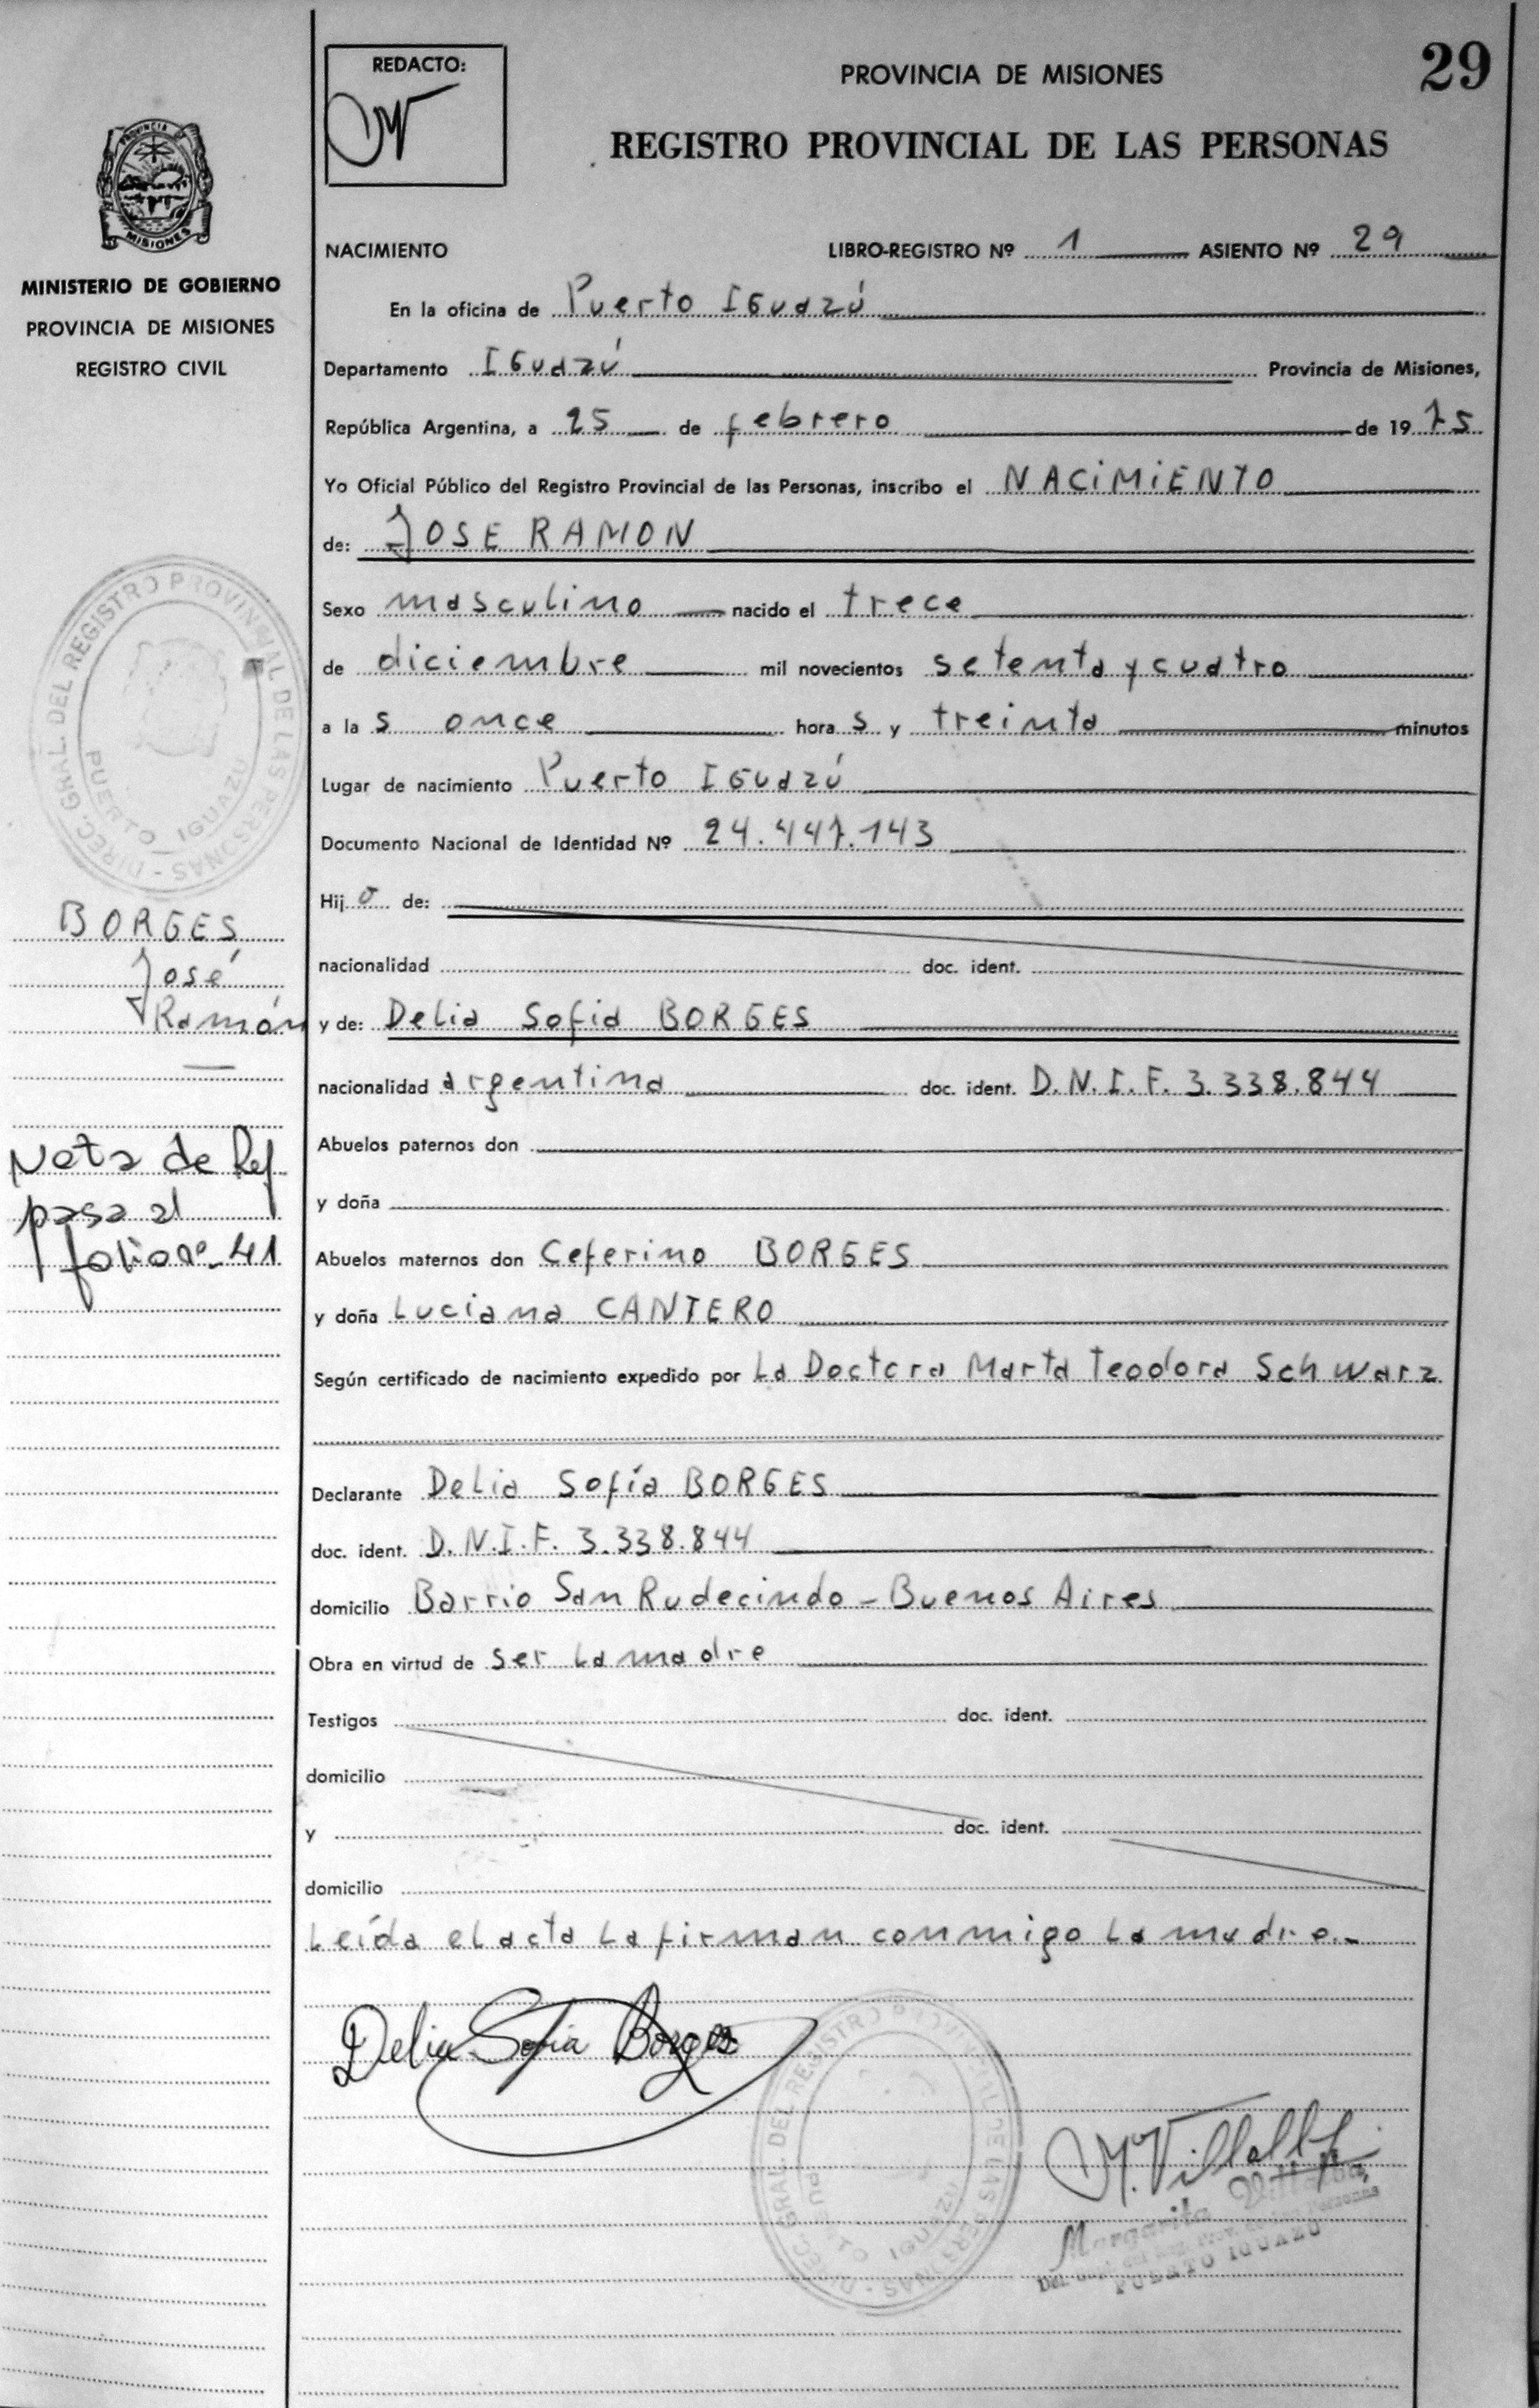 29
REDACTO:
PROVINCIA DE MISIONES
REGISTRO PROVINCIAL DE LAS PERSONAS
PROVINCIA
MISIONES
MINISTERIO DE GOBIERNO
PROVINCIA DE MISIONES
REGISTRO CIVIL
NACIMIENTO LIBRO-REGISTRO Nº 1 ASIENTO Nº 29
En la oficina de Puerto IGuazú
Departamento IGuazú Provincia de Misiones,
República Argentina, a 25 de febrero de 1975
Yo Oficial Público del Registro Provincial de las Personas, inscribo el NACiMiENTO
de: JOSE RAMON
Sexo masculino nacido el trece
de diciembre mil novecientos setenta y cuatro
a la s once hora s y treinta minutos
Lugar de nacimiento Puerto IGuazú
Documento Nacional de Identidad Nº 24.447.143
Hij o de:
nacionalidad doc. ident.
y de: Delia Sofia BORGES
nacionalidad argentina doc. ident. D.N.I.F. 3.338.844
Abuelos paternos don
y doña
Abuelos maternos don Ceferino BORGES
y doña Luciana CANTERO
Según certificado de nacimiento expedido por La Doctora Marta Teodora Schwarz
Declarante Delia Sofía BORGES
doc. ident. D.N.I.F. 3.338.844
domicilio Barrio San Rudecindo - Buenos Aires
Obra en virtud de ser La madre
Testigos doc. ident.
domicilio
y doc. ident.
domicilio
Leída el acta La firman conmigo La madre.-
Delia Sofia Borges
M. Villalba
Margarita Villalba
PUERTO IGUAZU
DIREC. GRAL. DEL REGISTRO PROVINCIAL DE LAS PERSONAS
PUERTO IGUAZU
BORGES
José
Ramón
Nota de Ref
pasa al
folio nº 41
DIREC. GRAL. DEL REGISTRO PROVINCIAL DE LAS PERSONAS
PUERTO IGUAZU